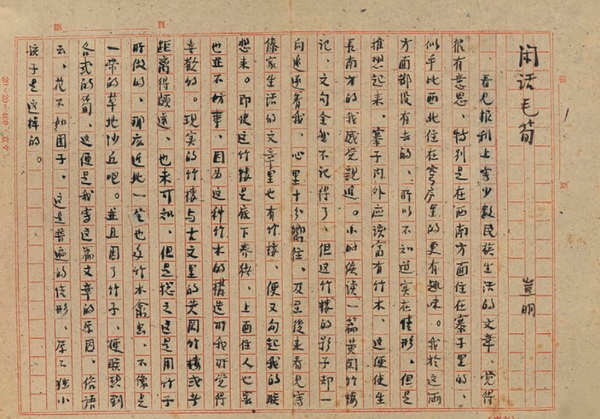 第 頁
闲话毛筍
豈明
看见报刊上少数民族生活的文章、觉得
很有意思、特别是在西南方面住在寨子里的、
似乎比西北住在穹庐里的更有趣味。我于这两
方面都没有去的、所以不知道实在情形、但是
推想起来、寨子内外应该富有竹木、这便使生
长南方的我感觉亲近。小的候读一篇黄冈竹楼
记、文句全都不记得了、但这竹楼的影子却一
向追逐着我、心里十分嚮往。及至後来看见写
傣家生活的文章里也有竹楼、便又勾起我的联
想来。即使这竹楼是底下养猪、上面住人也罢
也并不妨事、因为这种竹木的構造于我所觉得
喜欢的。现实的竹楼与古文里的黄冈竹楼或者
距离得颇远、也未可知、但是总之这是用竹子
所做的、那应近处一定也多竹木禽鸟、不像是
一带的草地沙丘吧。并且因了竹子、便联想到
各式的筍、这便是我写这篇文章的原因。俗语
云、花不如团子、这是普遍的情形、原不独小
孩子是这样的。